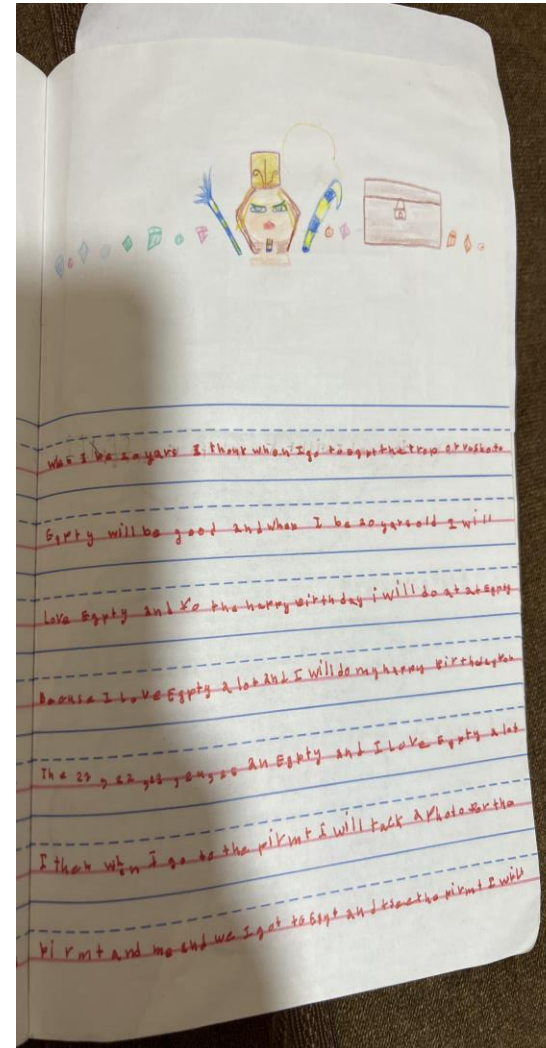 Wen I be 20 yars I thenk when I go to egipt the trep
Egpty will be good and when I be 20 years old I will
Love Egpty and so the happy birthday i will do at at Egpty
Becouse I Love Egpty a lot and I will do my happy birthday
The 21, 22, 23, 24, 25 an Egpty and I Love Egpty a lot
I then when I go to the pirmt I will tack a photo for the
pirmt and me and we I got to Egpt and I see the pirmt I will